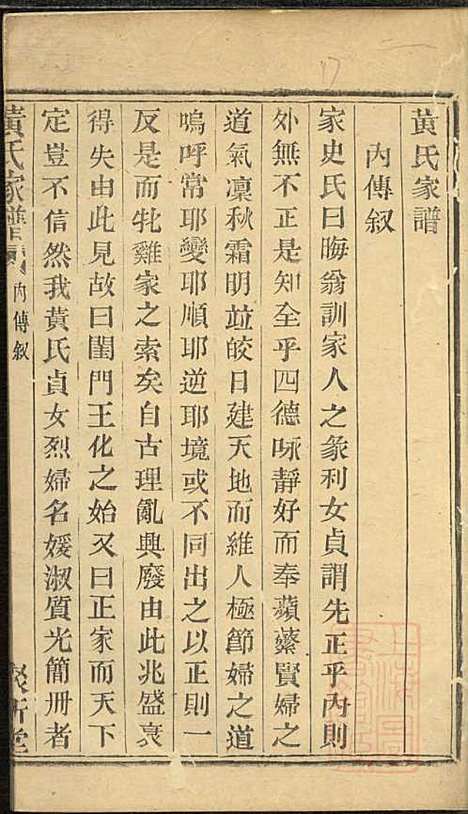 黃氏家譜
內傳叙
家史氏曰晦翁訓家人之彖利女貞謂先正乎內則
外無不正是知全乎四德咏靜好而奉蘋蘩賢婦之
道氣凜秋霜明竝皎日建天地而維人極節婦之道
嗚呼常耶變耶順耶逆耶境或不同出之以正則一
反是而牝雞家之索矣自古理亂興廢由此兆盛衰
得失由此見故曰閨門王化之始又曰正家而天下
定豈不信然我黃氏貞女烈婦名媛淑質光簡冊者
黃氏家譜 內傳叙
17